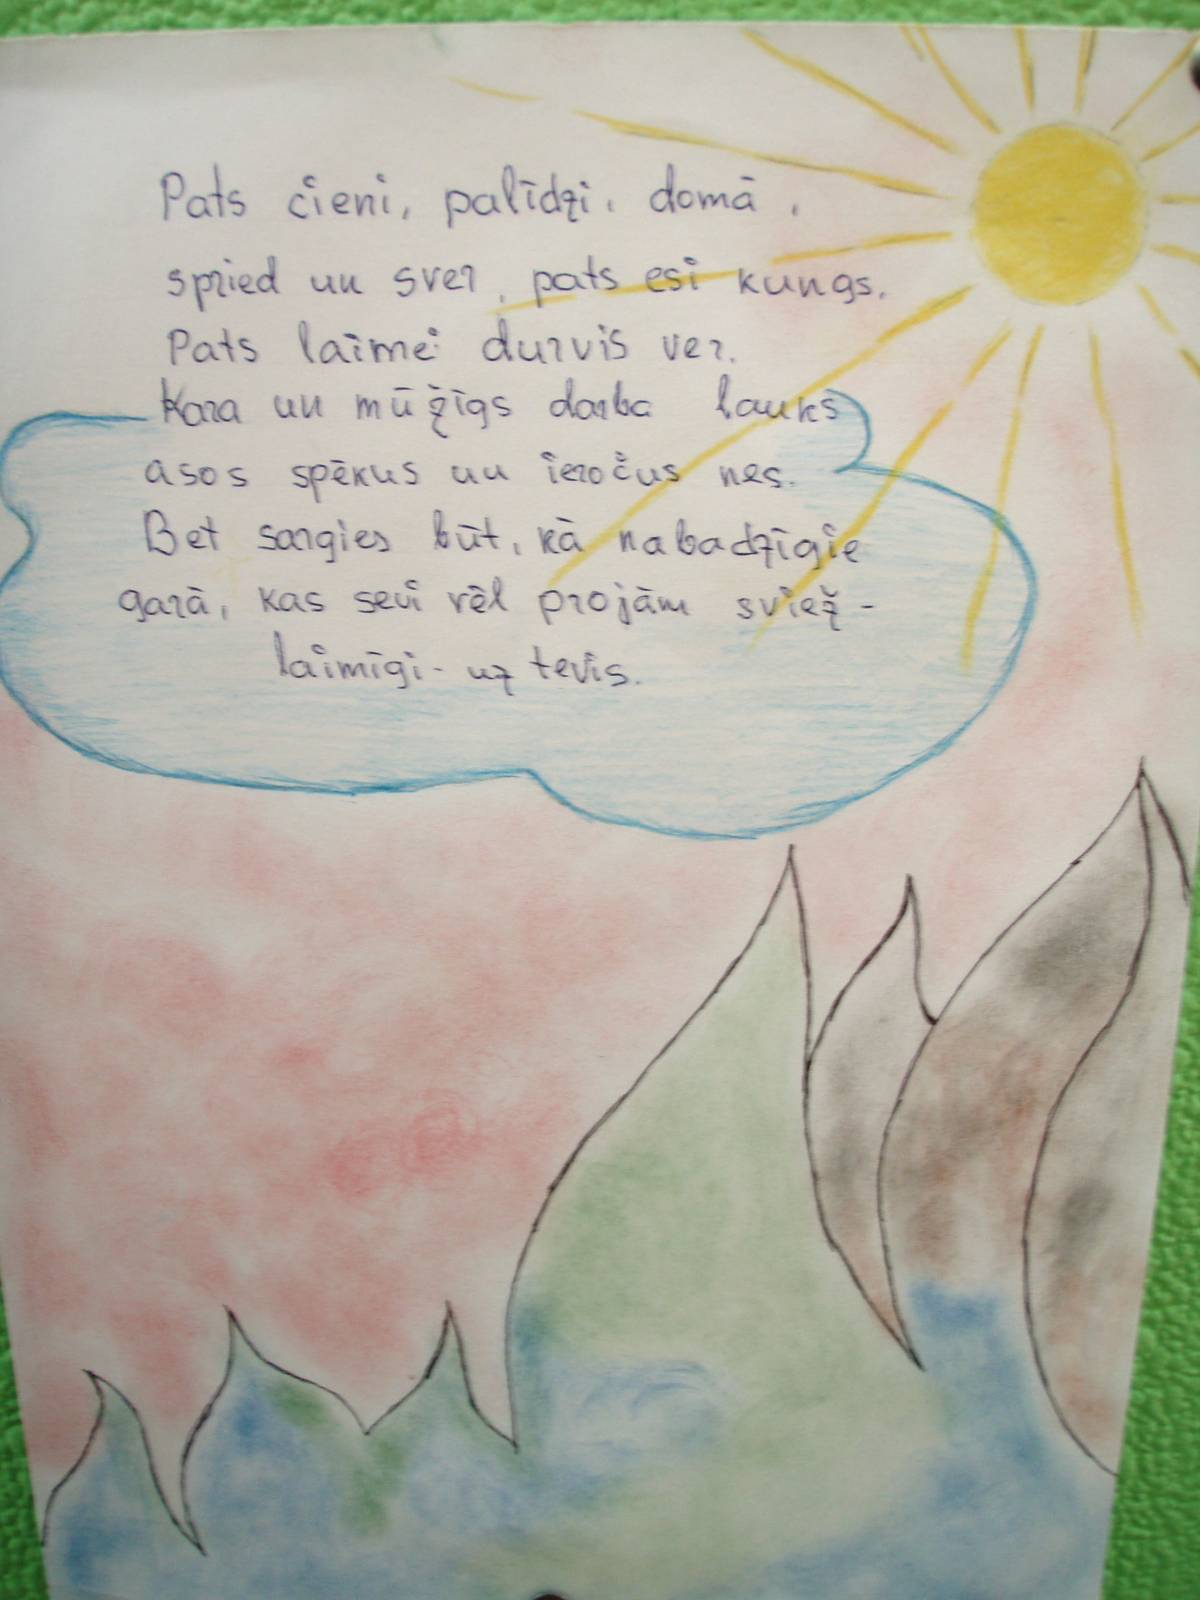 Pats cieni, palīdzi, domā,
spried un sver, pats esi kungs.
Pats laimei durvis ver.
Kara un mūžīgs darba lauks
asos spēkus un ieročus nes.
Bet sargies būt, kā nabadzīgie
garā, kas sevi vēl projām sviež -
laimīgi - uz tevis.